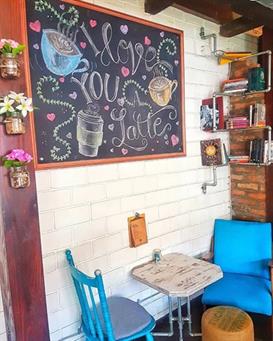 I Love
YOU a
Latte